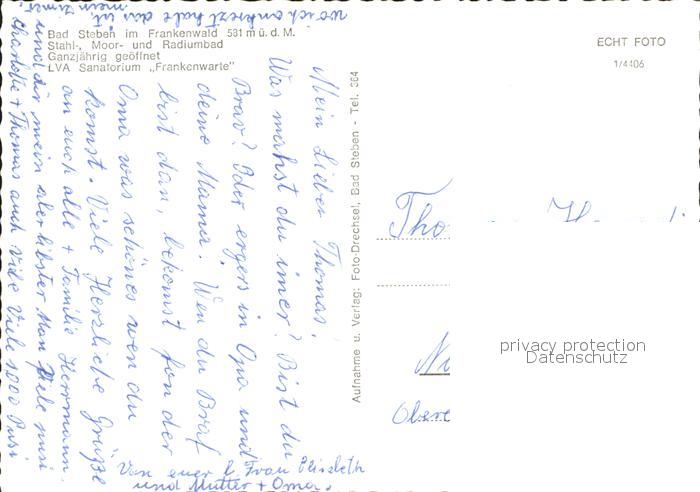 Bad Steben im Frankenwald 581 m ü. d. M.
Stahl-, Moor- und Radiumbad
Ganzjährig geöffnet
LVA Sanatorium „Frankenwarte"
ECHT FOTO
1/4406
Aufnahme u. Verlag: Foto-Drechsel, Bad Steben - Tel. 364
Mein Lieber Thomas!
Was machst du imer? Bist du
Brav? Oder ergers in Opa und
deine Mama. Wen du Braf
bist dan, bekomst fon der
Oma was schönes wen du
komst. Viele Herzliche Grüße
an euch alle + Familie Herrmann.
und dir mein aler libster Man Viele pusi
Charlotte + Thomas auch Viele Viele 1000 Pusi
Von euer l. Frau Elisabeth
und Mutter + Oma.
wo ich ankreizt habe das ist
mein zimer
Tho
H
Ni
Obere
privacy protection
Datenschutz